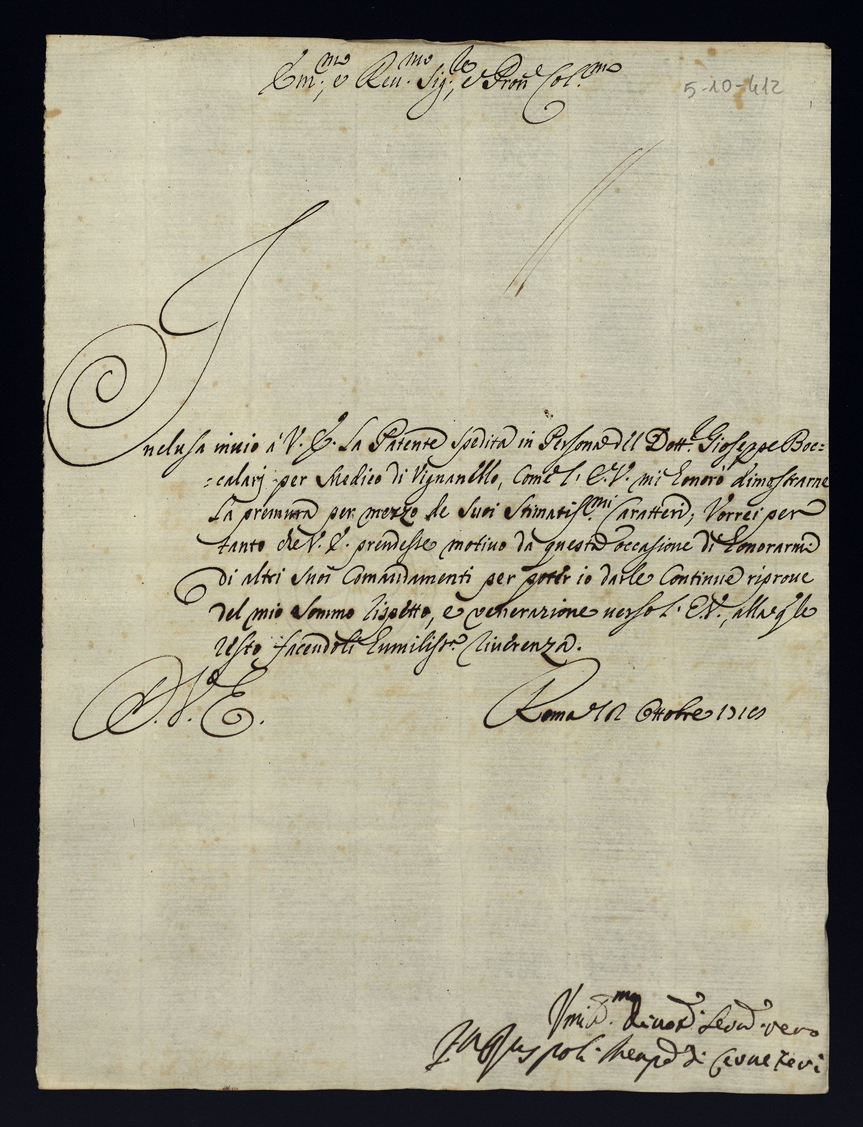 Em.mo, e Reu.mo Sig.re, e Pron.e Col.mo
5-10-412
Inclusa inuio à V. E. La Patente spedita in Persona del Dott.e Gioseppe Boc=
=calarj per Medico di Vignanello, Come l' E. V. mi honorò dimostrarne
La premura per mezzo de Suoi Stimatiss.mi Caratteri; Vorrei per
tanto che V. E. prendesse motiuo da questa occasione di honorarmi
di altri suoi Comandamenti per poter io darle Continue riproue
del mio Sommo rispetto, e venerazione verso l' E. V., alla q.le
resto facendoli humiliss.ma riuerenza.
D. V. E.
Roma Ottobre
Vmi.mo Diuot. Seru. vero
di Cerueteri